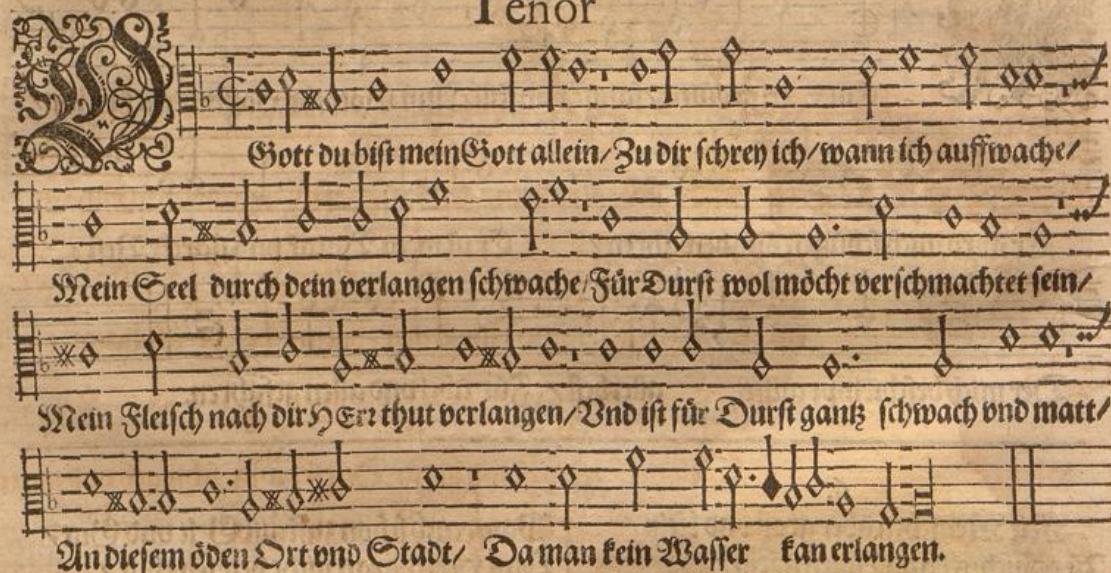 Tenor
O
Gott du bist mein Gott allein/ Zu dir schrey ich/ wann ich auffwache/
Mein Seel durch dein verlangen schwache/ Für Durst wol möcht verschmachtet sein/
Mein Fleisch nach dir HErr thut verlangen/ Vnd ist für Durst gantz schwach vnd matt/
An diesem öden Ort vnd Stadt/ Da man kein Wasser kan erlangen.